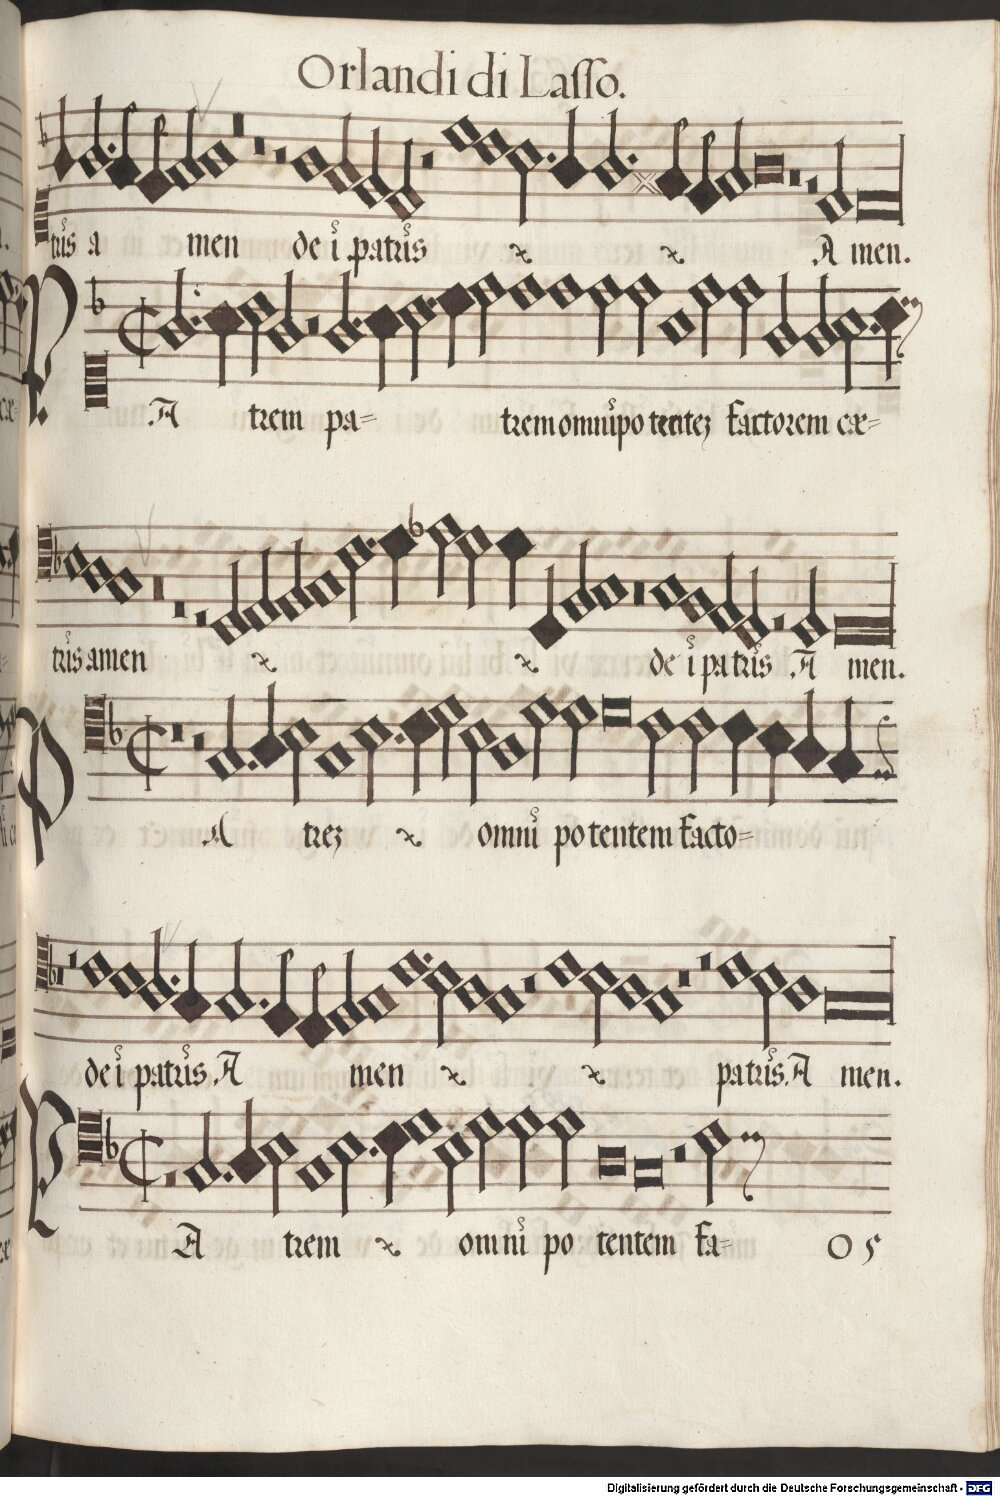 Orlandi di Lasso.
tris a men dei patris A men.
PA trem pa= trem omnipotentez factorem cæ=
tris amen dei patris A men.
PA trez omni potentem facto=
dei patris. A men patris. A men.
PA trem omni po tentem fa= 05
Digitalisierung gefördert durch die Deutsche Forschungsgemeinschaft - DFG